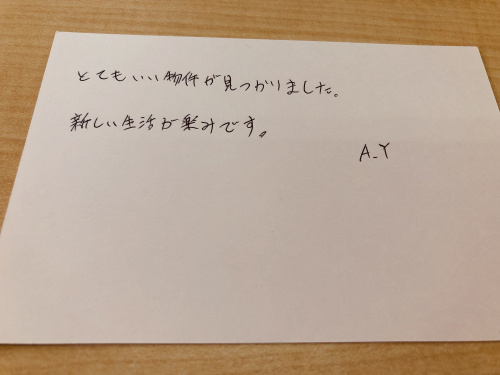 とてもいい物件が見つかりました。
新しい生活が楽みです。
A.Y